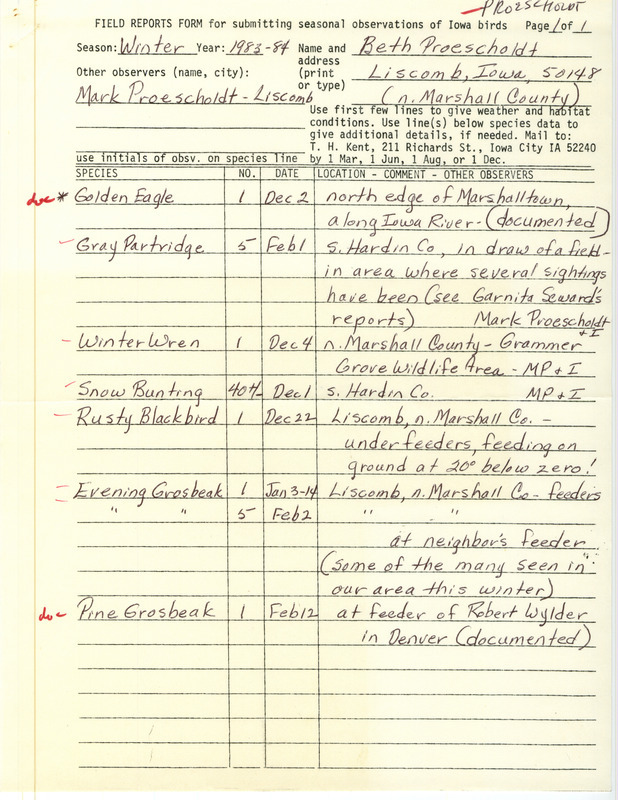 PROESCHOLDT
FIELD REPORTS FORM for submitting seasonal observations of Iowa birds Page 1 of 1
Season: Winter Year: 1983-84 Name and Beth Proescholdt
address
Other observers (name, city): (print Liscomb, Iowa, 50148
or type)
Mark Proescholdt - Liscomb (n. Marshall County)
Use first few lines to give weather and habitat
conditions. Use line(s) below species data to
give additional details, if needed. Mail to:
T. H. Kent, 211 Richards St., Iowa City IA 52240
use initials of obsv. on species line by 1 Mar, 1 Jun, 1 Aug, or 1 Dec.
SPECIES NO. DATE LOCATION - COMMENT - OTHER OBSERVERS
doc * Golden Eagle 1 Dec 2 north edge of Marshalltown,
along Iowa River - (documented)
Gray Partridge 5 Feb 1 s. Hardin Co, in draw of a field -
in area where several sightings
have been (see Garnita Seward's
reports) Mark Proescholdt
& I
Winter Wren 1 Dec 4 n. Marshall County - Grammer
Grove Wildlife Area - MP & I
Snow Bunting 40+/- Dec 1 s. Hardin Co. MP & I
Rusty Blackbird 1 Dec 22 Liscomb, n. Marshall Co. -
under feeders, feeding on
ground at 20° below zero!
Evening Grosbeak 1 Jan 3-14 Liscomb, n. Marshall Co - feeders
" " 5 Feb 2 " - "
at neighbor's feeder
(some of the many seen in
our area this winter)
doc Pine Grosbeak 1 Feb 12 at feeder of Robert Wylder
in Denver (documented)